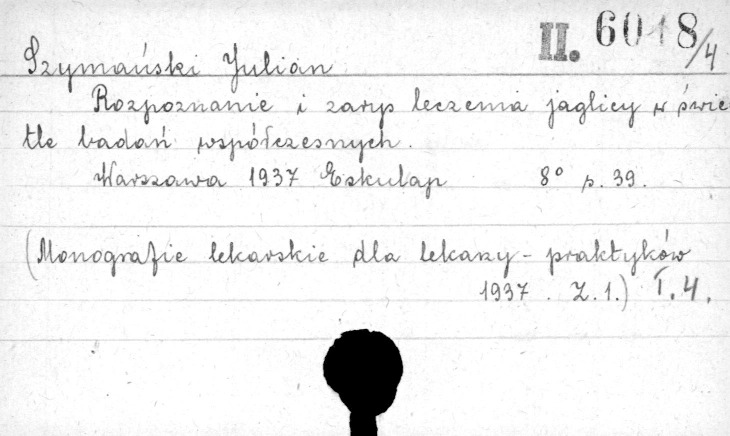 II. 6018/4
Szymański Julian
Rozpoznanie i zarys leczenia jaglicy w świe
tle badań współczesnych.
Warszawa 1937 Eskulap 8° s. 39.
(Monografie lekarskie dla lekarzy - praktyków
1937. Z. 1.) T. 4.